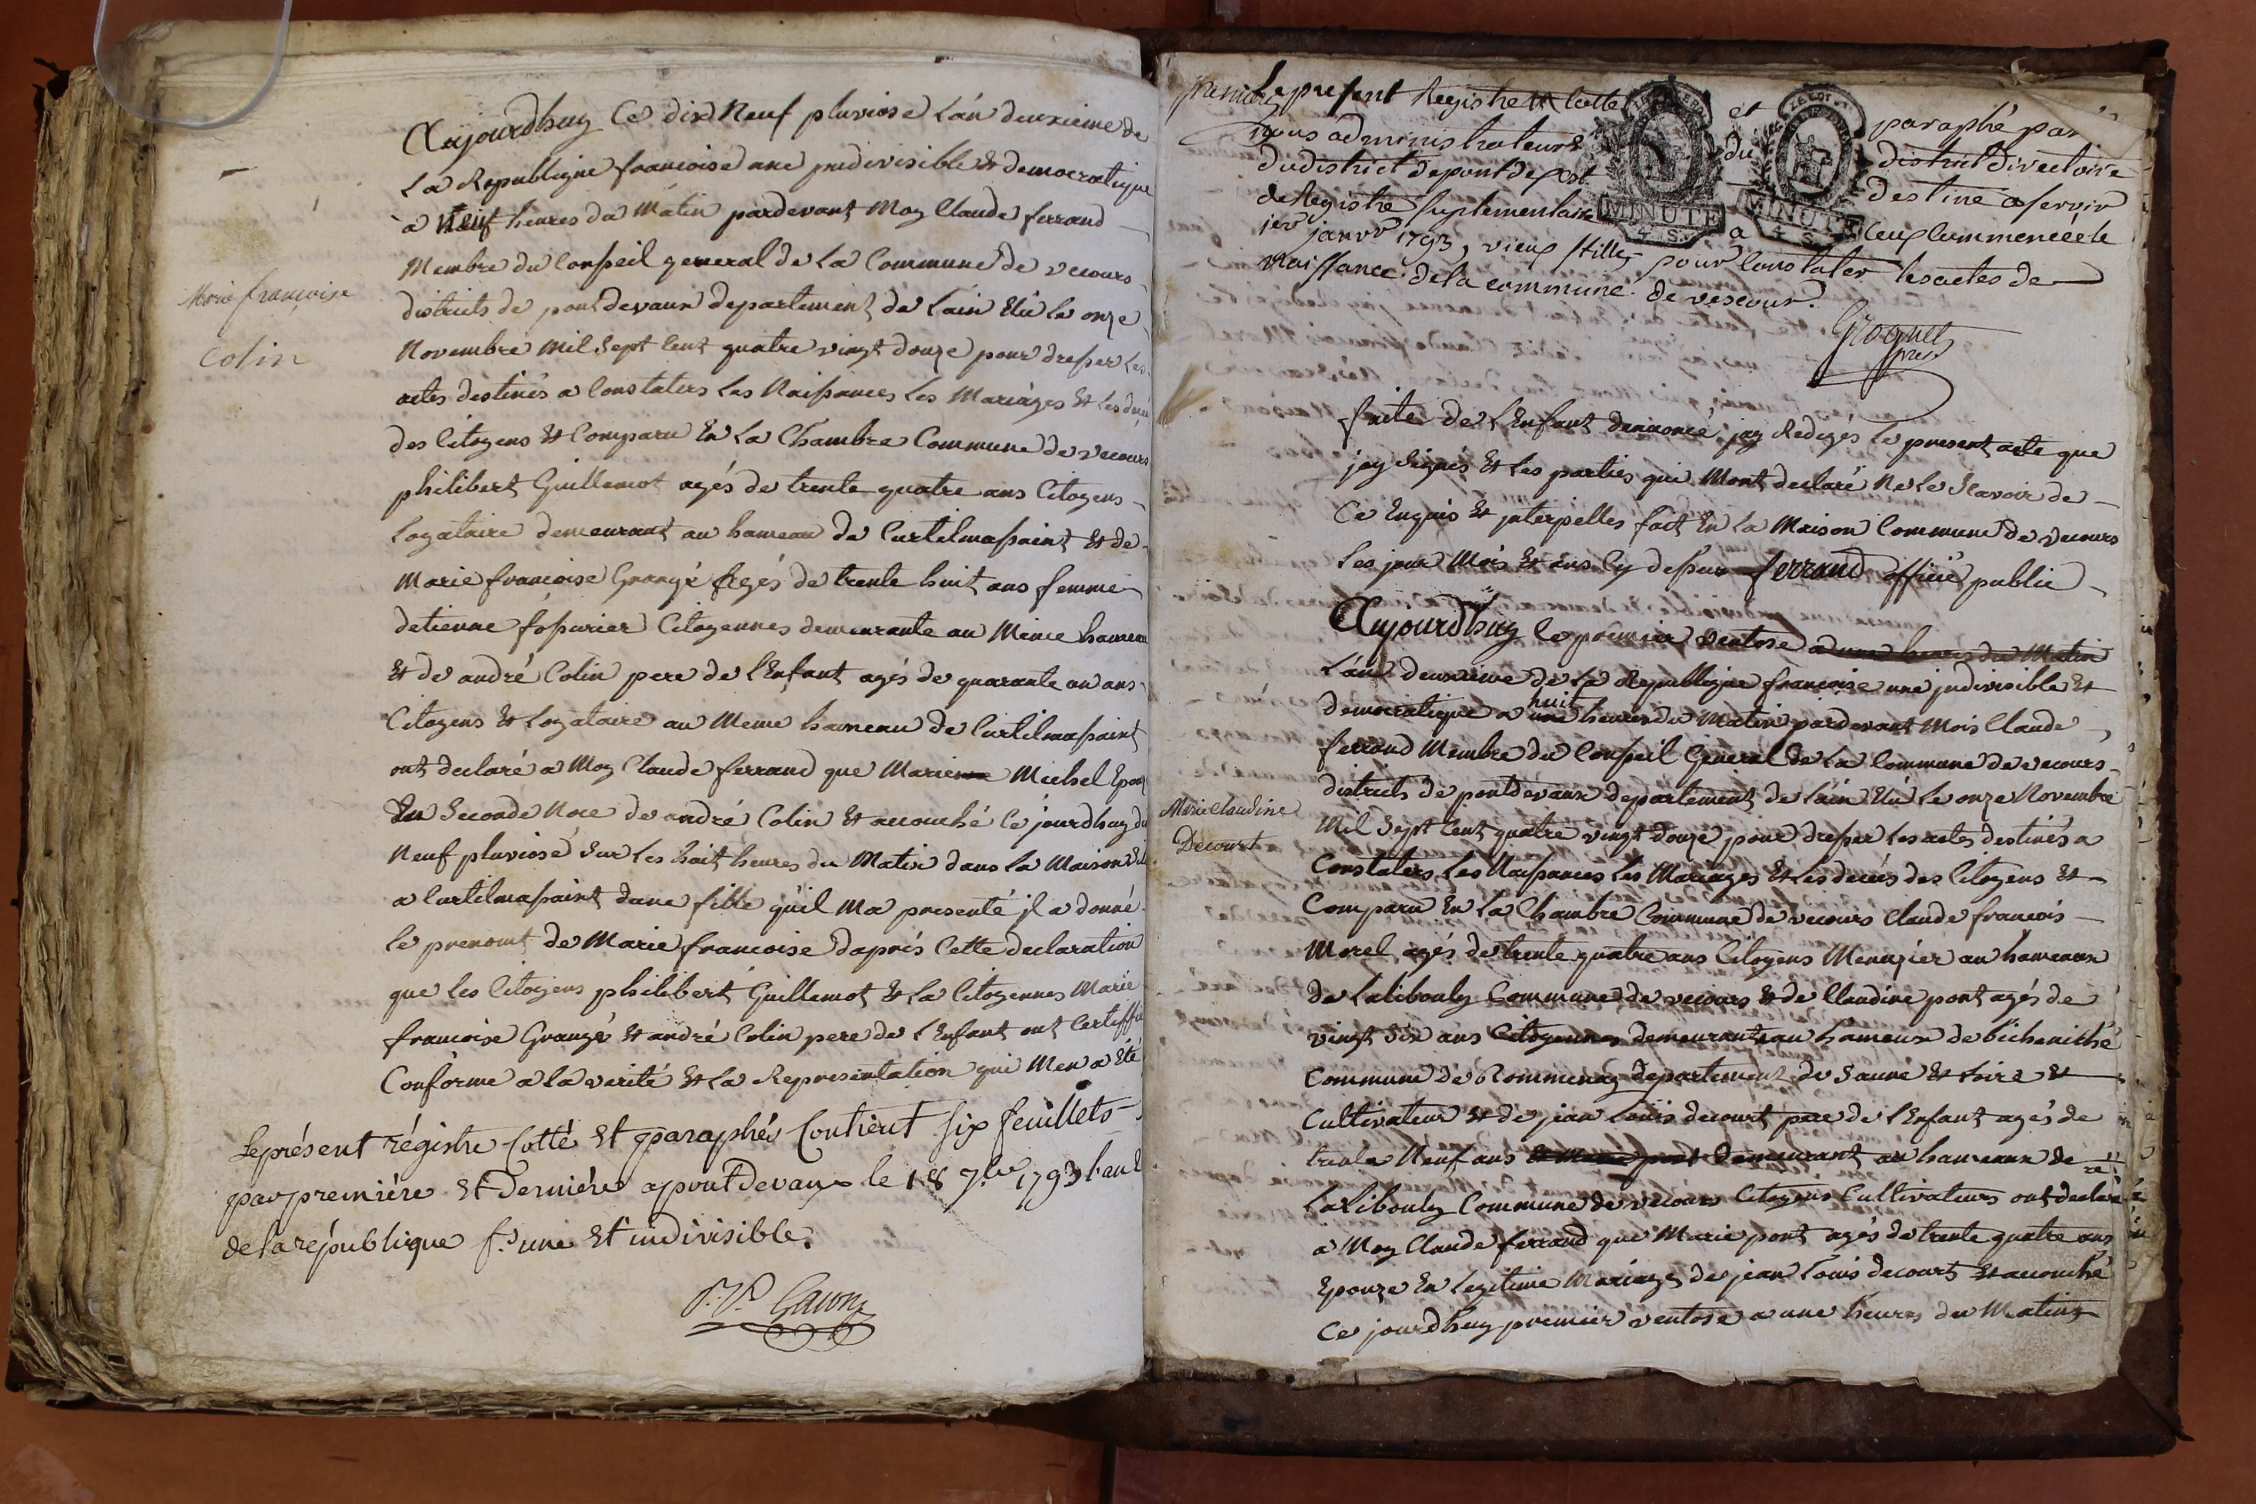 Aujourdhuy Ce dix Neuf pluviose L'án deuxieme de
La Republique francoise une jndivisible & democratique
à Neuf heures du Mátin pardevant Moy Claude ferrand
Membre du Conseil general de La Commune de vecours
districts de pontdevaux departement de Lain Elu Le onze
Novembre Mil Sept Cent quatre vingt douze pour dresser Les
actes destinés a Constaters Les Naissances Les Mariages Et Les
des Citoyens Et Comparu En La Chambre Commune de vecours
philibert Guillemot agés de trente quatre ans Citoyens
Logataire demeurant au hameau de Curtilmassaint Et de
Marie francoise Grangé Agés de trente huit ans femme
detienne fossurier Citoyennes demeurante au Meme hameau
Et de andré Colin pere de l'Enfant agés de quarante un ans
Citoyens Et Logataire au Meme hameau de Curtilmassaint
ont declaré a Moy Claude ferrand que Marie Michel Epouz
En Seconde Noce de andré Colin Et acouché Ce jourdhuy dix
Neuf pluviose Sur Les huit heures du Matin dans la Maison
a Curtilmassaint dune fille qu'il Ma presenté jl a donné
Le prenomt de Marie francoise daprés Cette declaration
que Les Citoyens philibert Guillemot & La Citoyennes Marie
francoise Grangé Et andré Colin pere de l'Enfant ont Certiffié
Conforme a la verité Et La Representation qui Men a Eté
Marie françoise
Colin
Le présent régistre Cotté Et paraphés Contient six feuillets
par première Et Derniére a pontdevaux le 18 7.bre 1793 l'an 2
de la république f.se une Et indivisible.
Le present Registre Cotté et paraphé par
Nous administrateurs du district Directoire
du district de pont de
de Registre suplementaire a Ceux Commencé le
destiné a servir
1er janvr 1793, vieux stille, pour Constater les actes de
Naissance de la commune de vescour.
MINUTE
4 S.
MINUTE
4 S.
suite de L'Enfant denoncé jay Redigés Le present acte que
jay Signés Et Les parties qui Mont declaré Ne Le Scavoir de
Ce Enquis Et jnterpelles fait En La Maison Commune de vecours
Les jour Mois Et ans Cy dessus ferrand officié public
Aujourdhuy Le premier ventose a une heures du Matin
L'án deuxieme de La Republique francoise une jndivisible Et
democratique a huit heures du Matin pardevant Mois Claude
ferrand Membre du Conseil General de La Commune de vecours
districts de pontdevaux departement de Lain Elu Le onze Novembre
Mil Sept Cent quatre vingt douze pour dresser Les actes destinés a
Constaters Les Naissances Les Mariages Et Les decés des Citoyens Et
Comparu En La Chambre Commune de vecours Claude francois
Morel agés de trente quatre ans Citoyens Menuzier au hameaux
de Lalibouly Commune de vecours Et de Claudine pont agés de
vingt Six ans Citoyennes demeurante au hameaux de
Commune de Rommenay departement de Saune Et Loire Et
Cultivateur Et de jean Louis decourt pere de l'Enfant agés de
trente Neuf ans Et Marie pont demeurant au hameaux de
Lalibouly Commune de vecours Citoyens Cultivateurs ont declaré
a Moy Claude ferrand que Marie pont agés de trente quatre ans
Epouze En Legitime Mariage de jean Louis decourt Et acouché
Ce jourdhuy premier ventose a une heures du Matin
Marie Claudine
Decourt